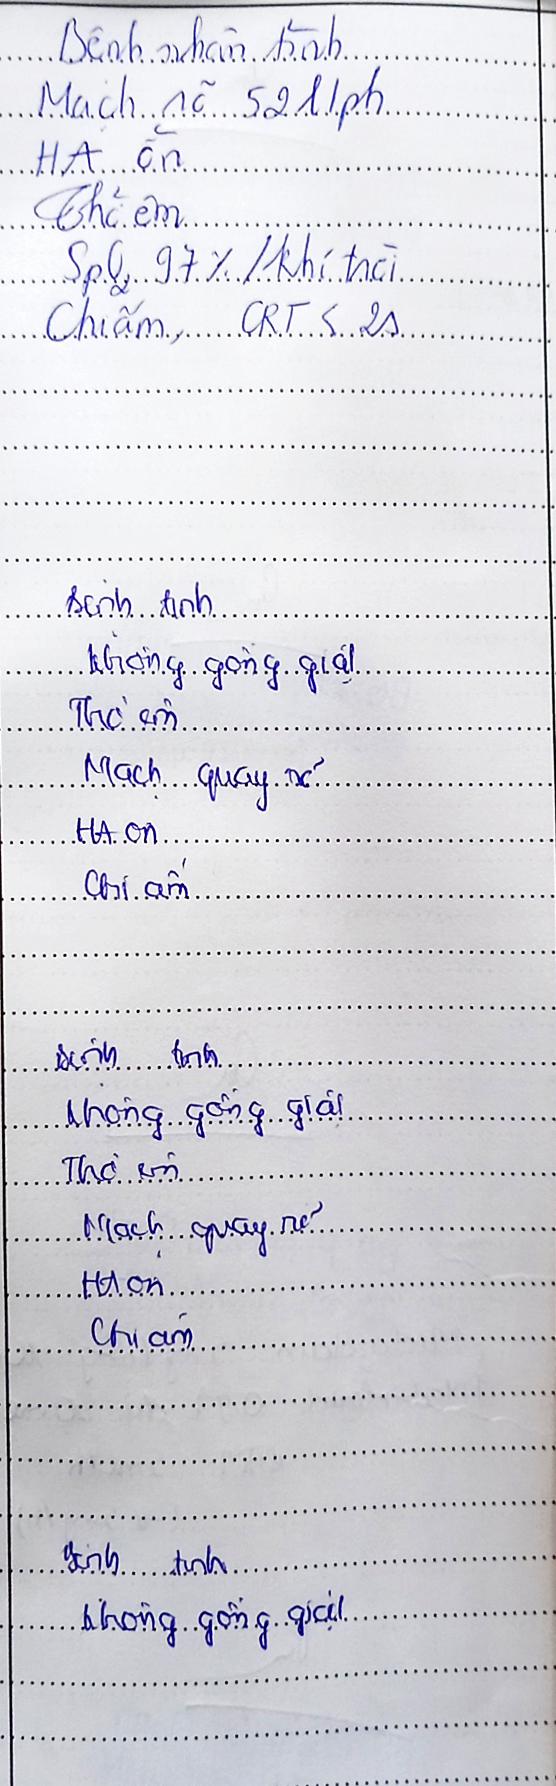 Bệnh nhân tỉnh
Mạch rõ 52 l/ph
HA ổn
Thở êm
SpO2 97% / khí trời
Chi ấm, CRT < 2s
Bệnh tỉnh
Không gồng giật
Thở êm
Mạch quay rõ
HA ổn
Chi ấm
Bệnh tỉnh
Không gồng giật
Thở êm
Mạch quay rõ
HA ổn
Chi ấm
Bệnh tỉnh
Không gồng giật